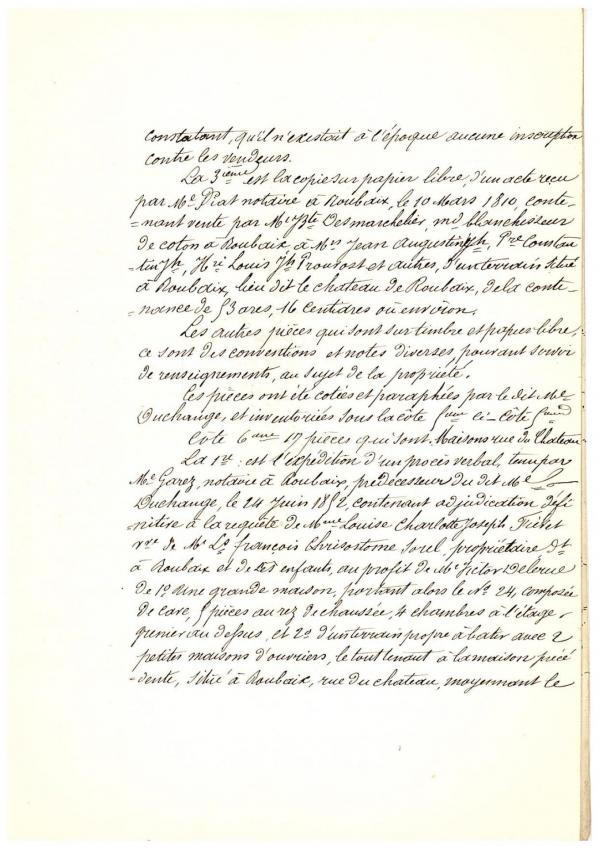 constatant, qu'il n'existait à l'époque aucune inscription
contre les vendeurs.
La 3ième est la copie sur papier libre, d'un acte reçu
par Me Piat notaire à Roubaix, le 10 Mars 1810, conte-
=nant vente par Mr Jbte Desmarchelier, md blanchisseur
de coton à Roubaix à Mrs Jean Augustin Jh, Pre Constan
tin Jh, Hri Louis Jh Prouvost et autres, d'un terrain situé
à Roubaix, lieu dit le chateau de Roubaix, de la conte-
=nance de 53 ares, 16 centiares ou environ.
Les autres pièces qui sont sur timbre et papier libre,
ce sont des conventions et notes diverses, pouvant servir
de renseignements, au sujet de la propriété.
Ces pièces ont été cotées et paraphées par le dit Me
Duchange, et inventoriées sous la côte 5eme ci- Côte 5eme
Côte 6eme 17 pièces qui sont Maisons rue du Chateau
La 1re: est l'expédition d'un procès verbal, tenu par
Me Garez, notaire à Roubaix, prédécesseur du dit Me
Duchange, le 24 Juin 1852, contenant adjudication défi
=nitive à la requête de Mme Louise Charlotte Joseph
vve de Mr Ls françois Chrisostome Sorel, propriétaire dt
à Roubaix et de ses enfants, au profit de Mr Victor Delerue
de 1o Une grande maison, portant alors le No 24, composée
de cave, 5 pièces au rez de chaussée, 4 chambres à l'étage,
grenier au dessus, et 2o d'un terrain propre à batir avec 2
petites maisons d'ouvriers, le tout tenant à la maison précé
=dente, situé à Roubaix, rue du chateau, moyennant le